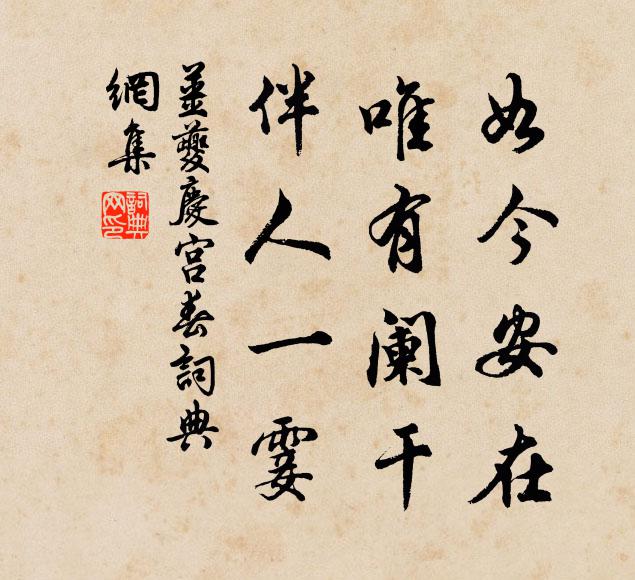 如今安在
唯有阑干
伴人一霎
薑夔慶宫春詞典
網集
詞典
网印